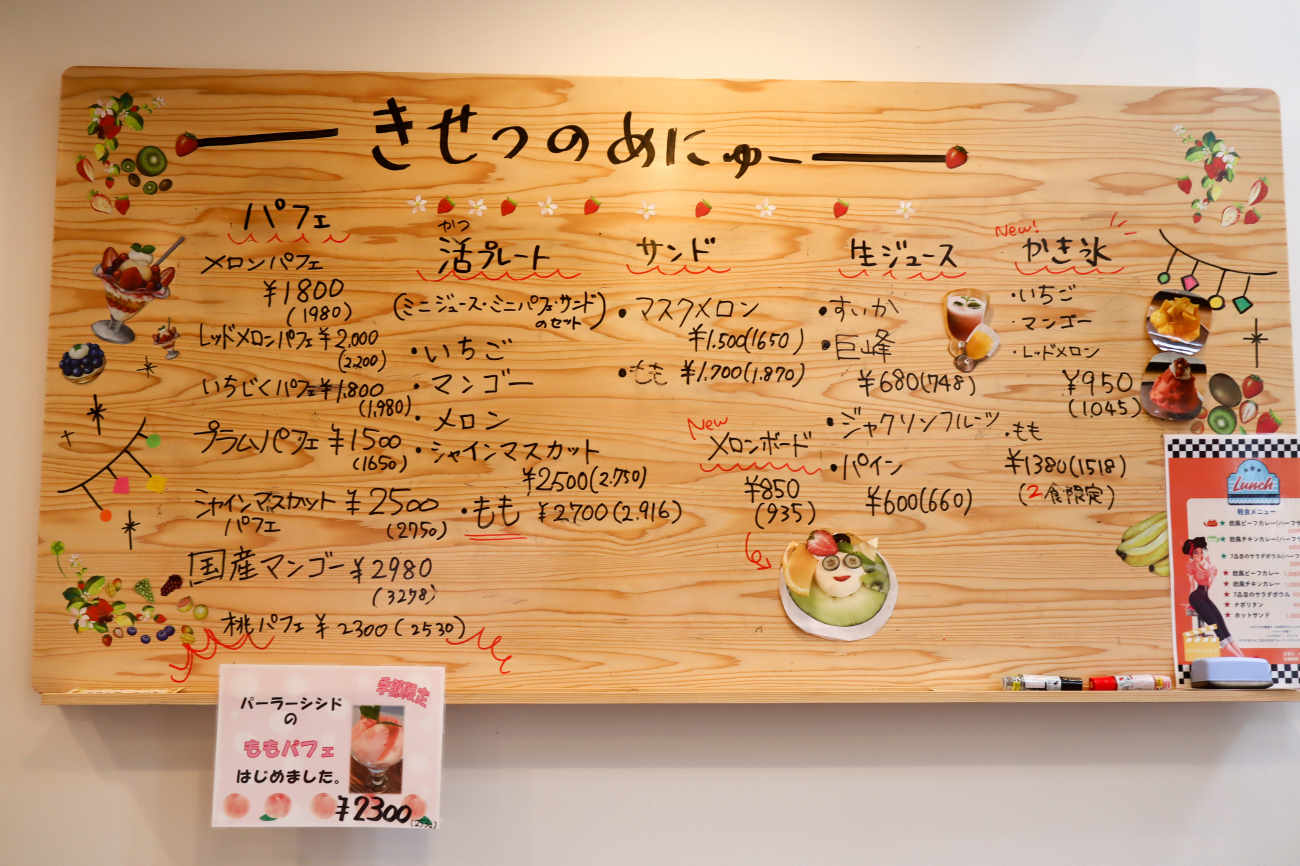 きせつのめにゅー
パフェ
メロンパフェ
¥1800
(1980)
レッドメロンパフェ ¥2,000
(2.200)
いちじくパフェ ¥1.800
(1.980)
プラムパフェ ¥1500
(1650)
シャインマスカット ¥2500
パフェ
(2750)
国産マンゴー ¥2980
(3278)
桃パフェ ¥2300(2530)
かつ
活プレート
(ミニジュース・ミニパフェ・サンド)
のセット
・いちご
・マンゴー
・メロン
・シャインマスカット
¥2500(2.750)
・もも ¥2700(2.916)
サンド
・マスクメロン
¥1.500(1650)
・もも ¥1.700(1.870)
New
メロンボード
¥850
(935)
生ジュース
・すいか
・巨峰
¥680(748)
・ジャクソンフルーツ
・パイン
¥600(660)
New!
かき氷
・いちご
・マンゴー
・レッドメロン
¥950
(1045)
・もも
¥1380(1518)
(2食限定)
Lunch
軽食メニュー
★欧風ビーフカレー
★欧風チキンカレー
★7品目のサラダボウル
★ナポリタン
★ホットサンド
季節限定
パーラーシシド
の
ももパフェ
はじめました。
¥2300